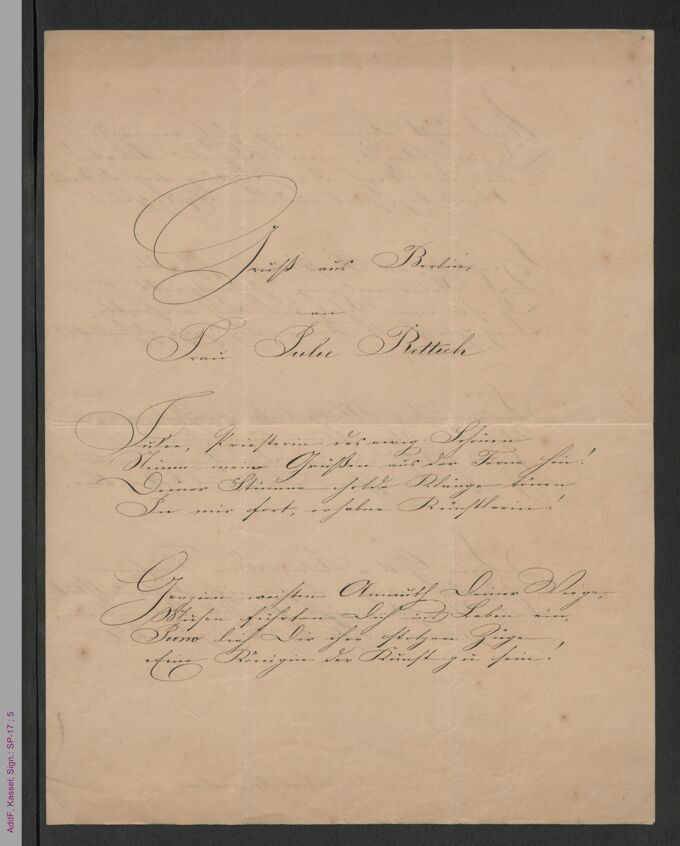 Gruß aus Berlin,
an
Frau Julie Rettich
Julie, Priesterin des ewig Schönen
Nimm mein Grüßen aus der Ferne hin!
Deiner Stimme holde Klänge tönen
In mir fort, erhabne Künstlerin!
Grazien weihten Anmuth Deiner Wiege,
Musen führten Dich ins Leben ein,
Juno lieh Dir ihre stolzen Züge
Eine Königin der Kunst zu sein!
AddF, Kassel; Sign.: SP-17 ; 5